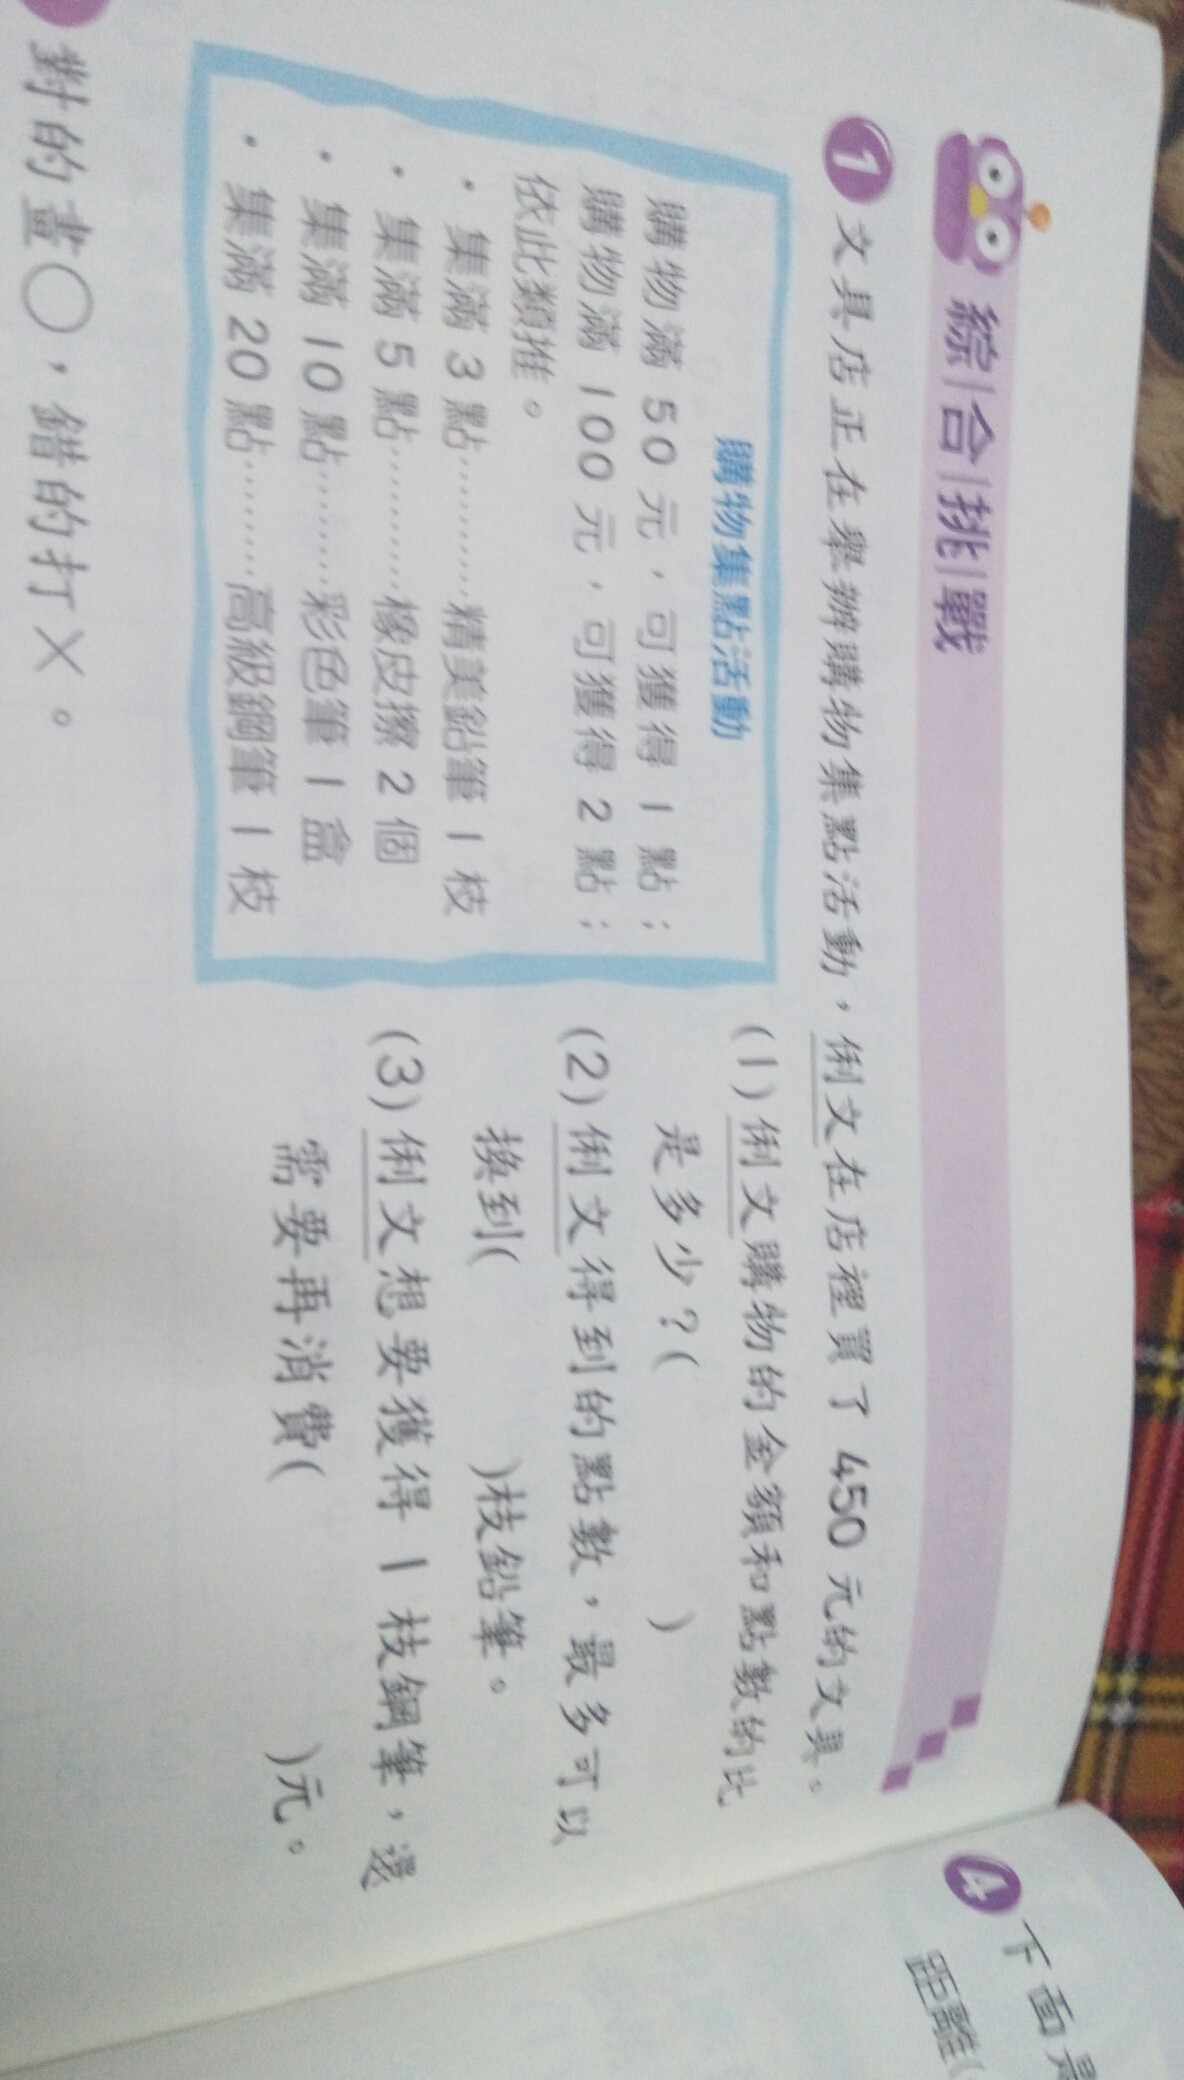 綜合挑戰
1 文具店正在舉辦購物集點活動，俐文在店裡買了 450 元的文具。
購物集點活動
購物滿 50 元，可獲得 1 點；
購物滿 100 元，可獲得 2 點；
依此類推。
• 集滿 3 點⋯⋯⋯精美鉛筆 1 枝
• 集滿 5 點⋯⋯⋯橡皮擦 2 個
• 集滿 10 點⋯⋯⋯彩色筆 1 盒
• 集滿 20 點⋯⋯⋯高級鋼筆 1 枝
(1) 俐文購物的金額和點數的比
是多少？( )
(2) 俐文得到的點數，最多可以
換到( )枝鉛筆。
(3) 俐文想要獲得 1 枝鋼筆，還
需要再消費( )元。
對的畫○，錯的打×。
4 下面
距離(